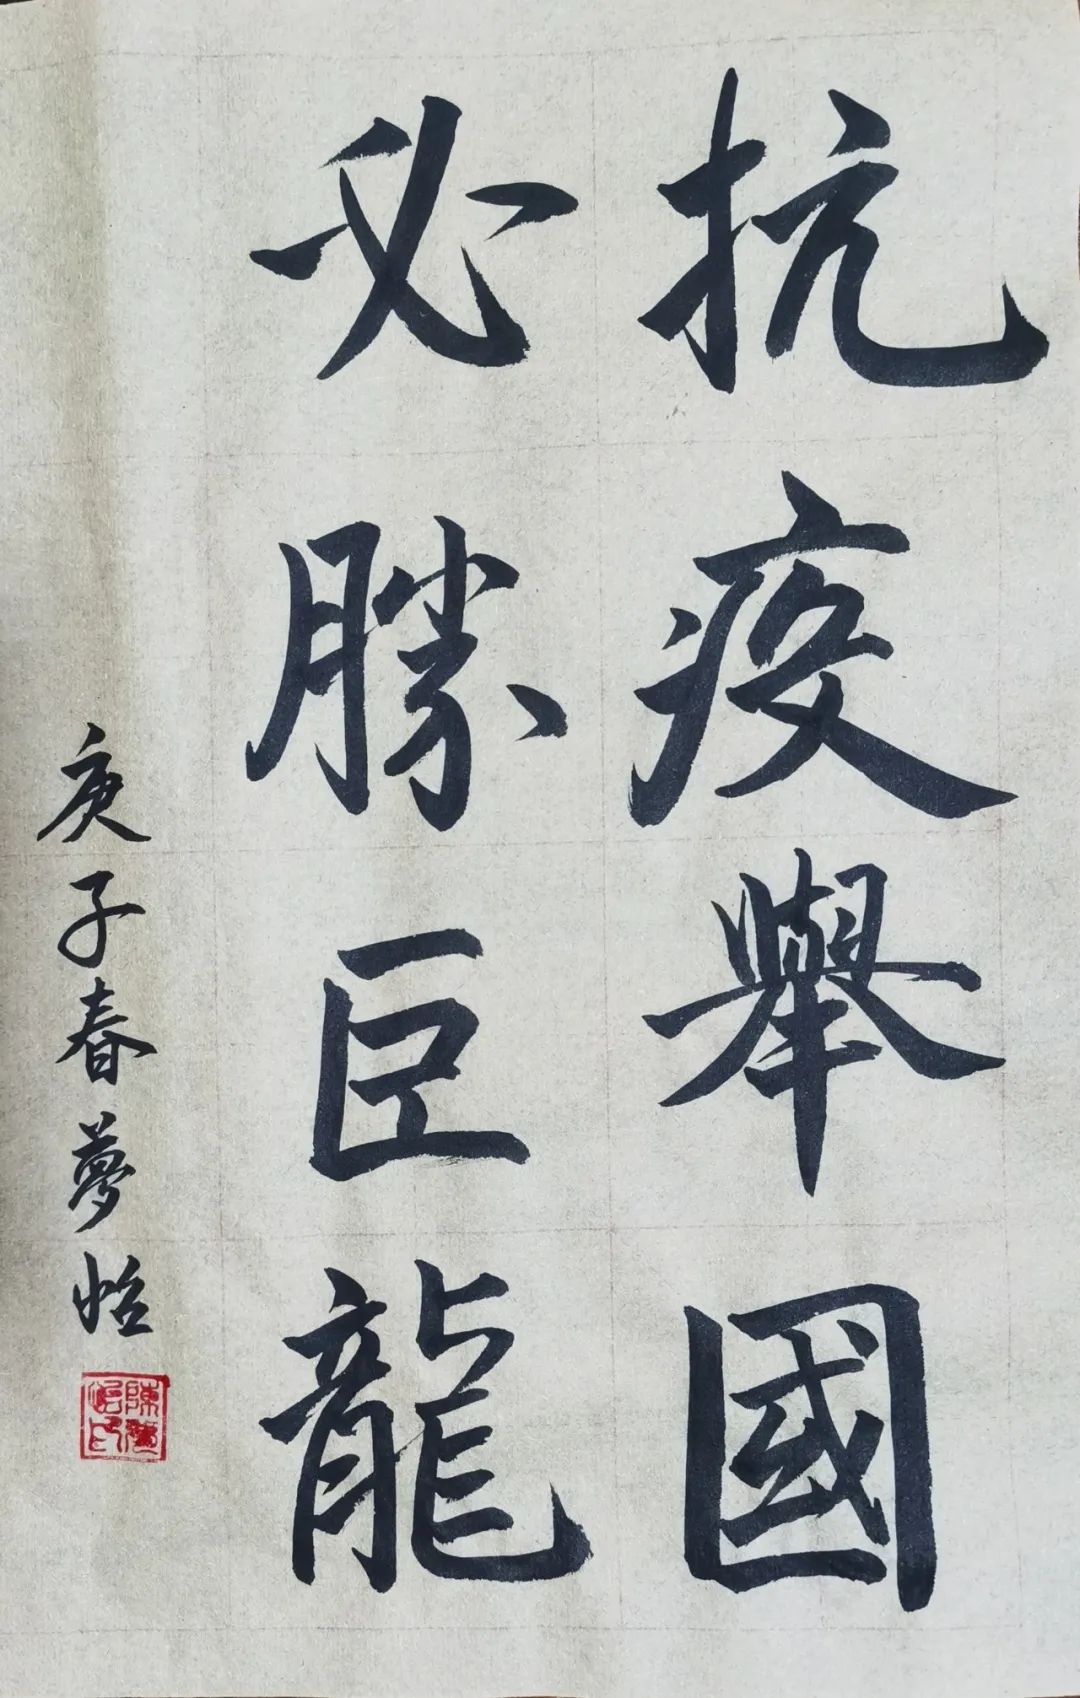 抗疫舉國
必勝巨龍
庚子春夢怡